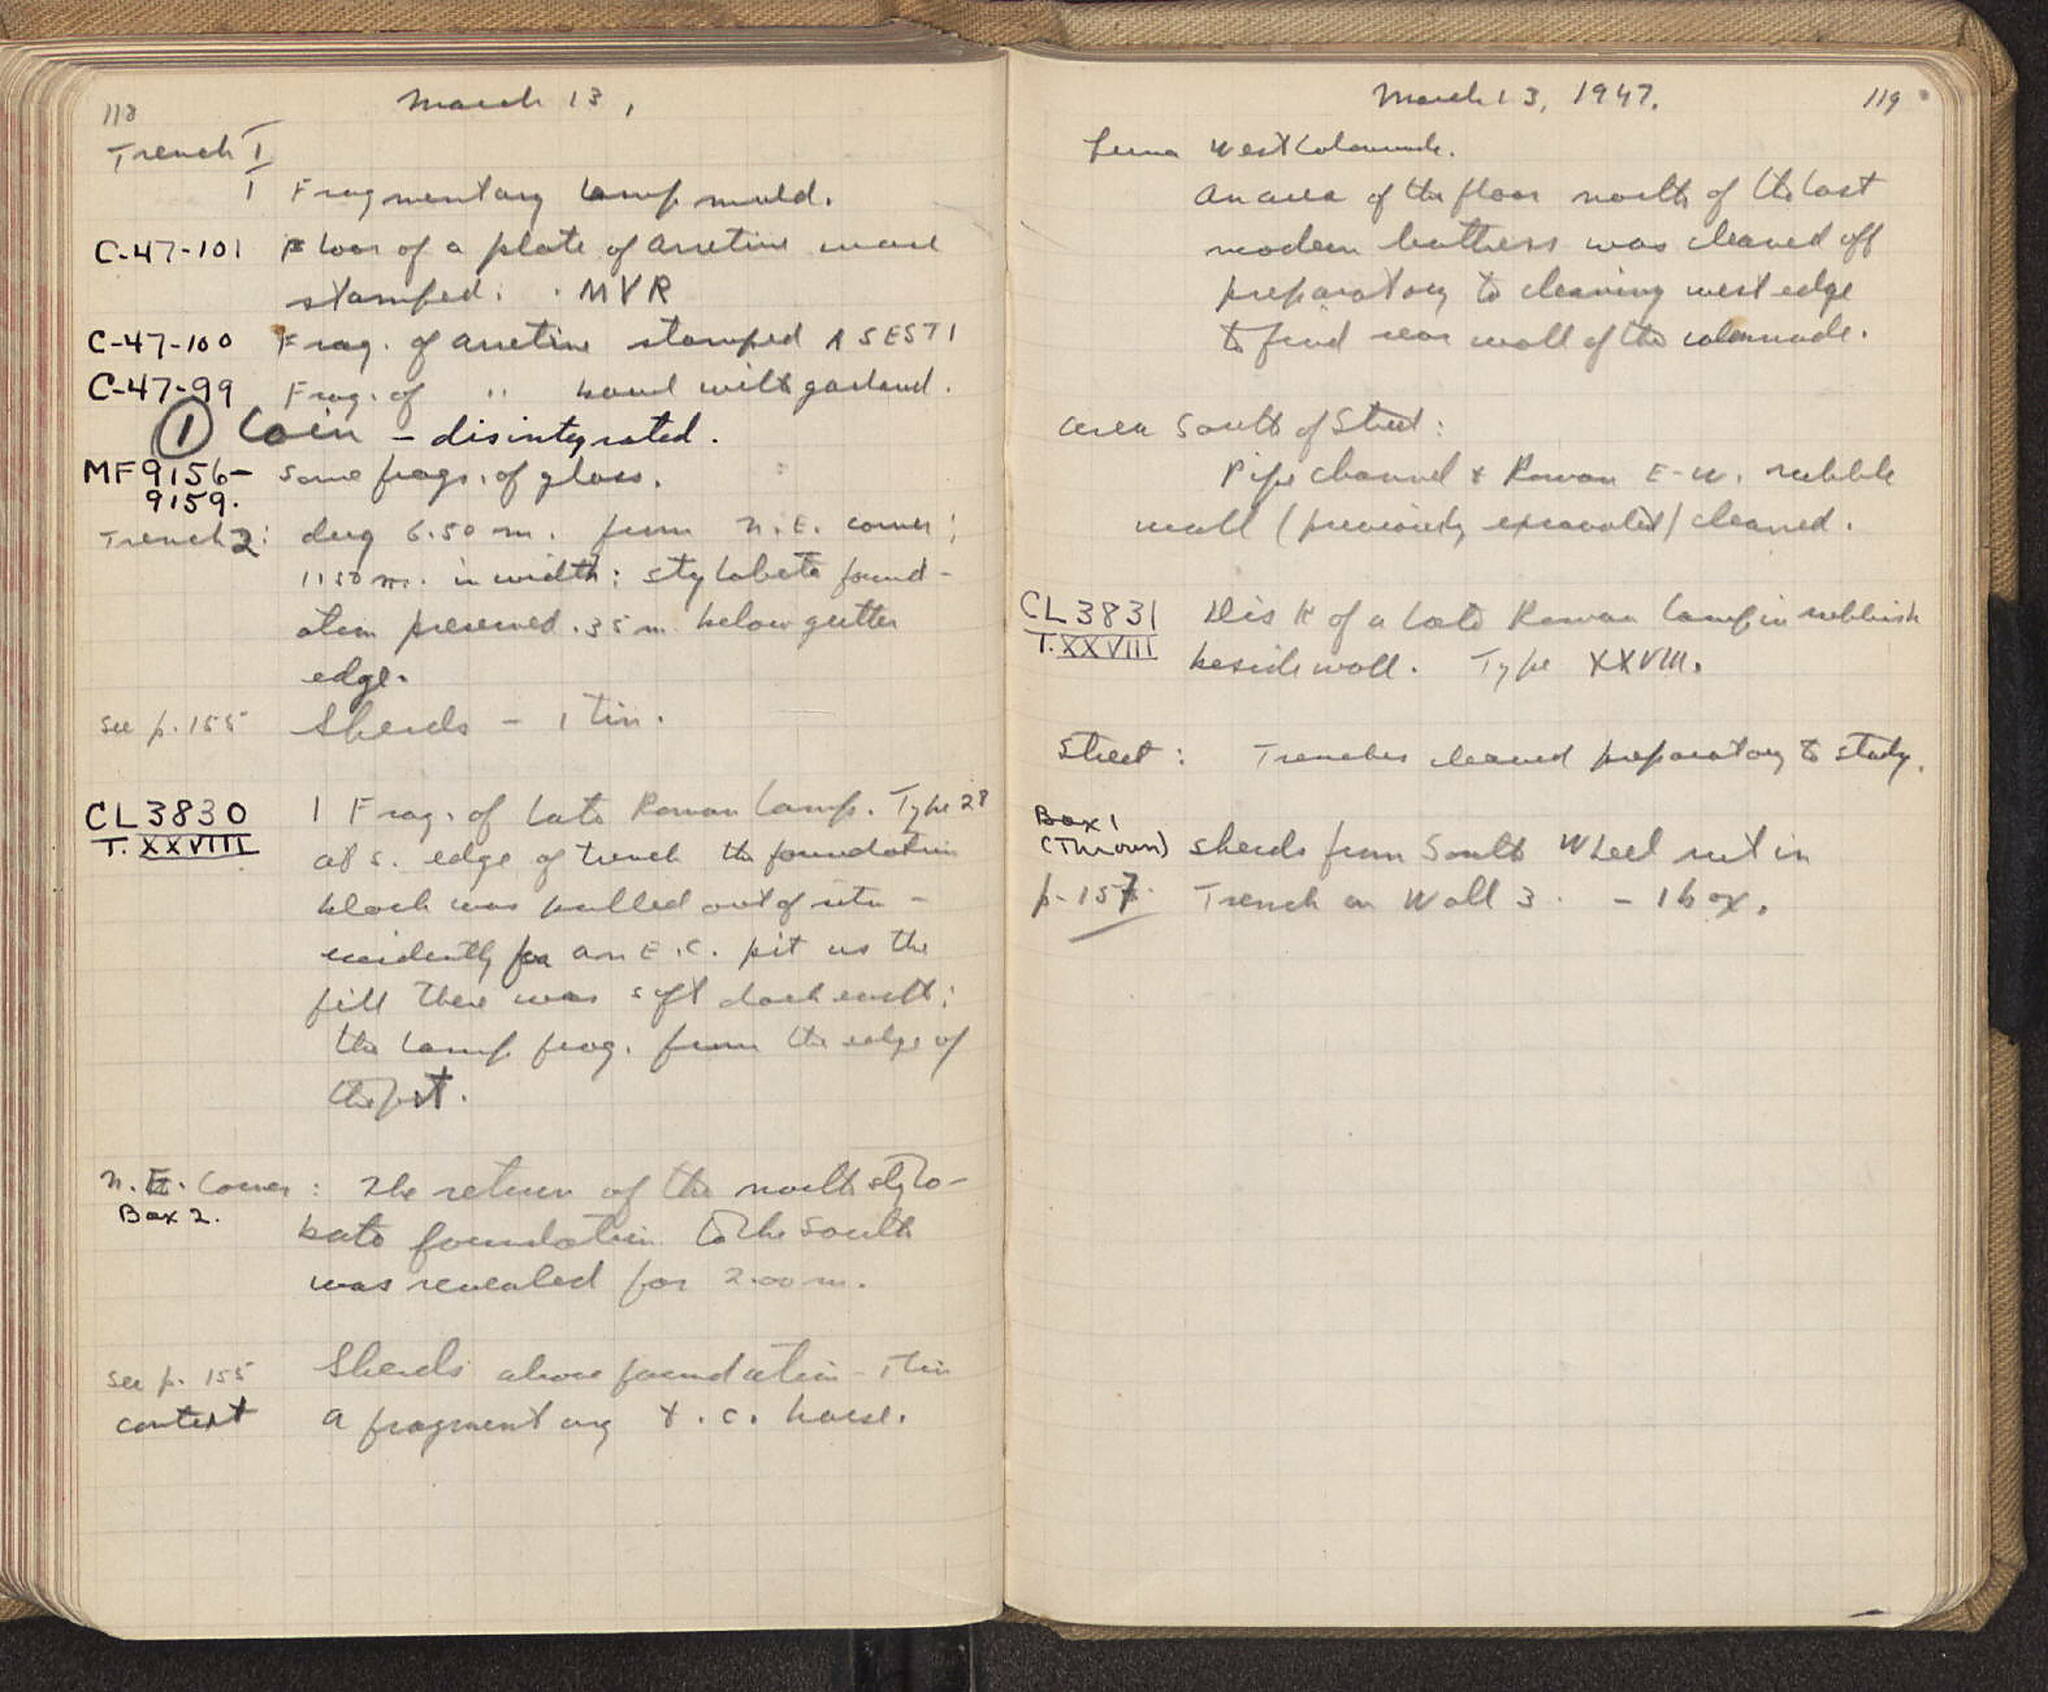 118
March 13,
Trench I
1 Fragmentary lamp mould.
C-47-101 Floor of a plate of arretine ware
stamped: MVR
C-47-100 Frag. of arretine stamped ASESTI
C-47-99 Frag. of " bowl with garland.
① Coin - disintegrated.
MF 9156- Some frags. of glass.
9159.
Trench 2: dug 6.50 m. from N.E. corner;
1.50 m. in width: stylobate found-
ation preserved .35 m. below gutter
edge.
see p. 155 Sherds - 1 tin.
CL 3830 1 Frag. of Late Roman lamp. Type 28
T. XXVIII at S. edge of trench the foundation
block was pulled out of situ -
evidently for an E.C. pit as the
fill there was soft dark earth;
the lamp frag. from the edge of
the pit.
N.E. Corner: The return of the north stylo-
Box 2. bate foundation to the South
was revealed for 2.00 m.
see p. 155 Sherds above foundation - 1 tin
context A fragmentary t.c. horse.
March 13, 1947. 119
West Colonnade.
An area of the floor north of the last
modern buttress was cleaned off
preparatory to cleaning west edge
to find rear wall of the colonnade.
Area South of Street:
Pipe channel & Roman E-W. rubble
wall (previously excavated) cleaned.
CL 3831 Disk of a Late Roman lamp in rubbish
T. XXVIII beside wall. Type XXVIII.
Street: Trenches cleaned preparatory to study.
Box 1
(Thrown) sherds from South Wheel rut in
p. 157. Trench on Wall 3. - 1 box.